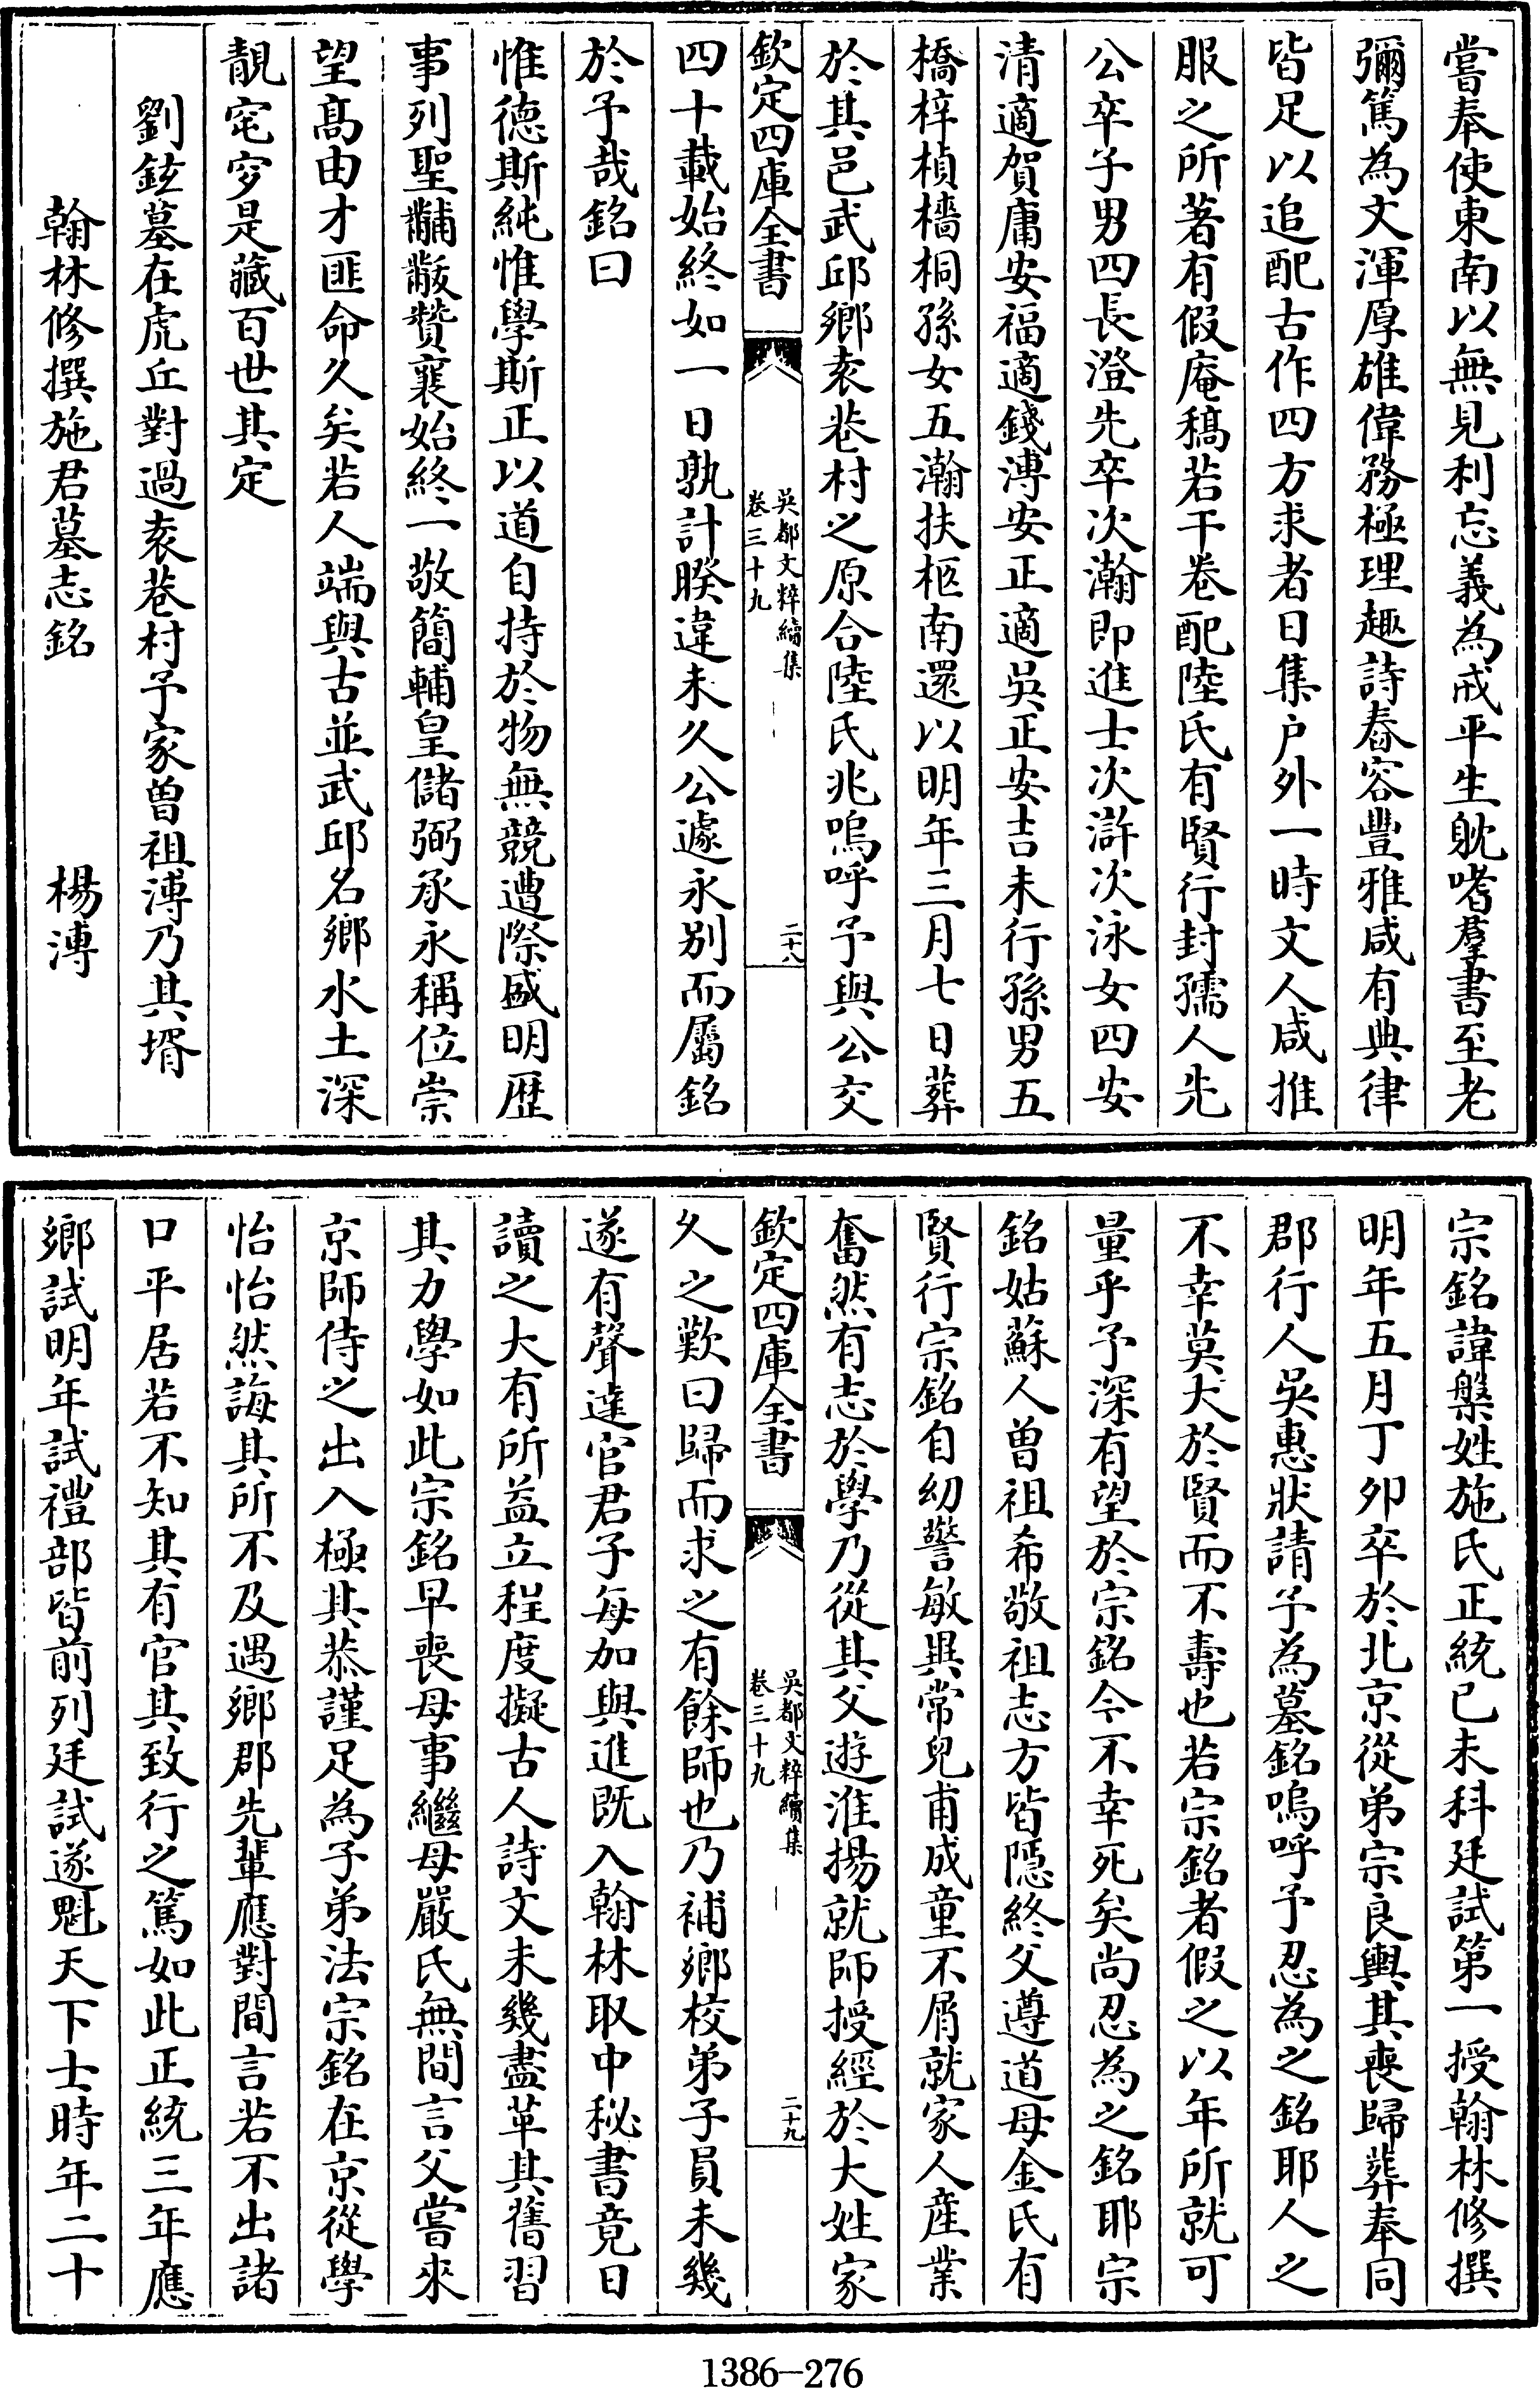 嘗奉使東南以無見利忘義為戒平生躭嗜羣書至老
彌篤為文渾厚雄偉務極理趣詩舂容豐雅咸有典律
皆足以追配古作四方求者日集户外一時文人咸推
服之所著有假庵稿若干卷配陸氏有賢行封孺人先
公卒子男四長澄先卒次瀚即進士次滸次泳女四安
清適賀庸安福適錢溥安正適吳正安吉未行孫男五
橋梓楨檣桐孫女五瀚扶柩南還以明年三月七日葬
於其邑武邱鄉袁巷村之原合陸氏兆嗚呼予與公交
欽定四庫全書
吳都文粹續集
卷三十九
二十八
四十載始終如一日孰計暌違未久公遽永别而屬銘
於予哉銘曰
惟德斯純惟學斯正以道自持於物無競遭際盛明歴
事列聖黼黻贊襄始終一敬簡輔皇儲弼承永稱位崇
望髙由才匪命久矣若人端與古並武邱名鄉水土深
靚窀穸是藏百世其定
劉鉉墓在虎丘對過袁巷村予家曾祖溥乃其壻
翰林修撰施君墓志銘
楊溥
宗銘諱槃姓施氏正統己未科廷試第一授翰林修撰
明年五月丁夘卒於北京從弟宗良輿其喪歸葬奉同
郡行人吳惠狀請予為墓銘嗚呼予忍為之銘耶人之
不幸莫大於賢而不壽也若宗銘者假之以年所就可
量乎予深有望於宗銘今不幸死矣尚忍為之銘耶宗
銘姑蘇人曾祖希敬祖志方皆隱終父遵道母金氏有
賢行宗銘自幼警敏異常兒甫成童不屑就家人産業
奮然有志於學乃從其父遊淮揚就師授經於大姓家
欽定四庫全書
吳都文粹續集
卷三十九
二十九
久之歎曰歸而求之有餘師也乃補鄉校弟子員未幾
遂有聲達官君子每加與進既入翰林取中秘書竟日
讀之大有所益立程度擬古人詩文未幾盡革其舊習
其力學如此宗銘早喪母事繼母嚴氏無間言父嘗來
京師侍之出入極其恭謹足為子弟法宗銘在京從學
怡怡然誨其所不及遇鄉郡先輩應對間言若不出諸
口平居若不知其有官其致行之篤如此正統三年應
鄉試明年試禮部皆前列廷試遂魁天下士時年二十
1386-276